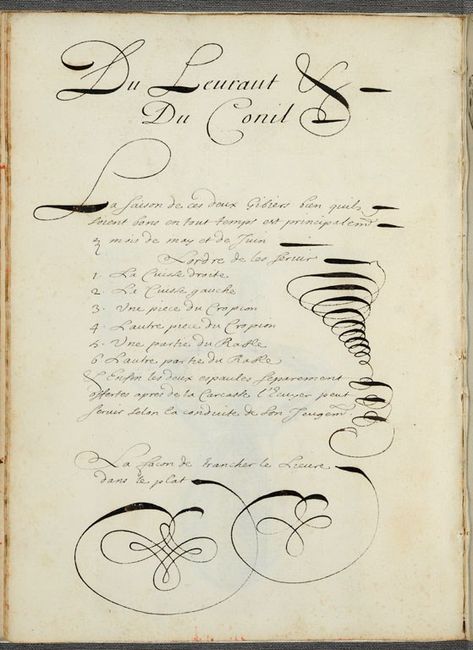 Du Leuraut &
Du Conil
La saison de ces deux Gibiers bien quils
soient bons en tout temps est principalemt
mois de may et de Juin
L'ordre de les seruir
1. La Cuisse droite
2. La Cuisse gauche
3. Une piece du Cropion
4. L'autre piece du Cropion
5. Une partie du Rable
6 L'autre partie du Rable
& Enfin les deux espaules separement
offertes aprés de la Carcasse l'Escuyer peut
seruir selon la conduite de son Jeugemt
La facon de trancher le Lieure
dans le plat